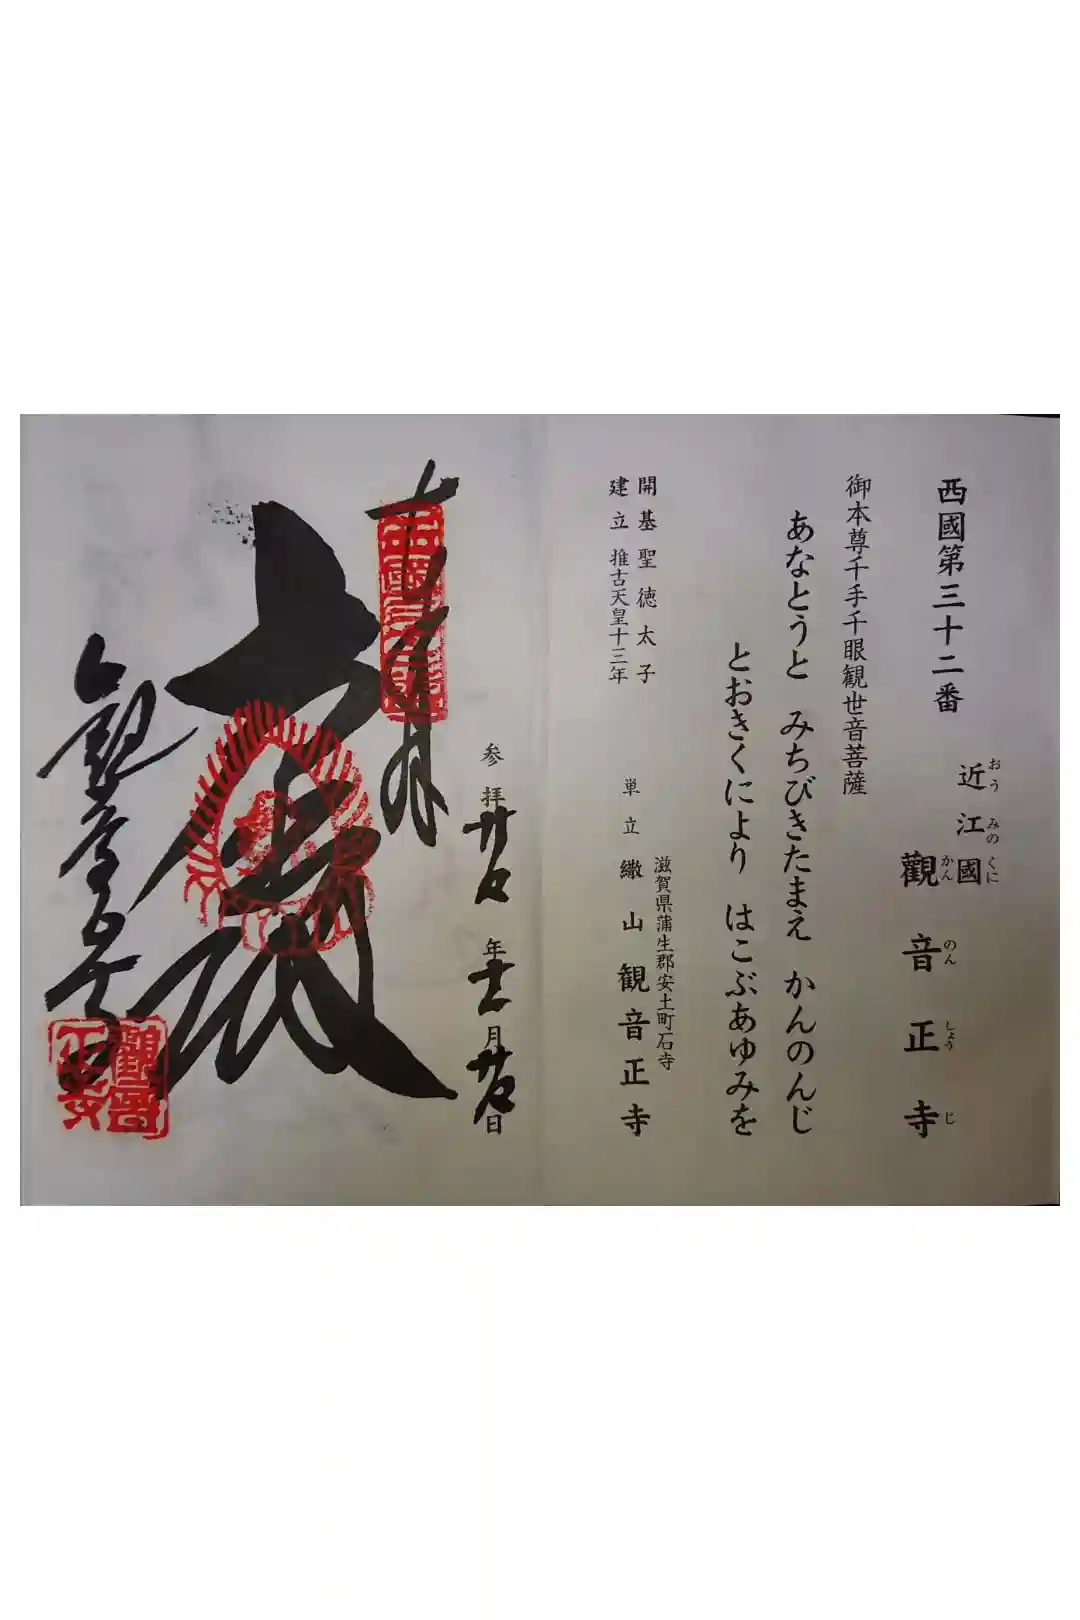 西國第三十二番
近江國
おうみのくに
觀音正寺
かんのんしょうじ
御本尊千手千眼観世音菩薩
あなとうと みちびきたまえ かんのんじ
とおきくにより はこぶあゆみを
開基聖徳太子
建立推古天皇十三年
滋賀県蒲生郡安土町石寺
単立繖山観音正寺
参拝
年
月
日
奉拝
大悲殿
観音正寺